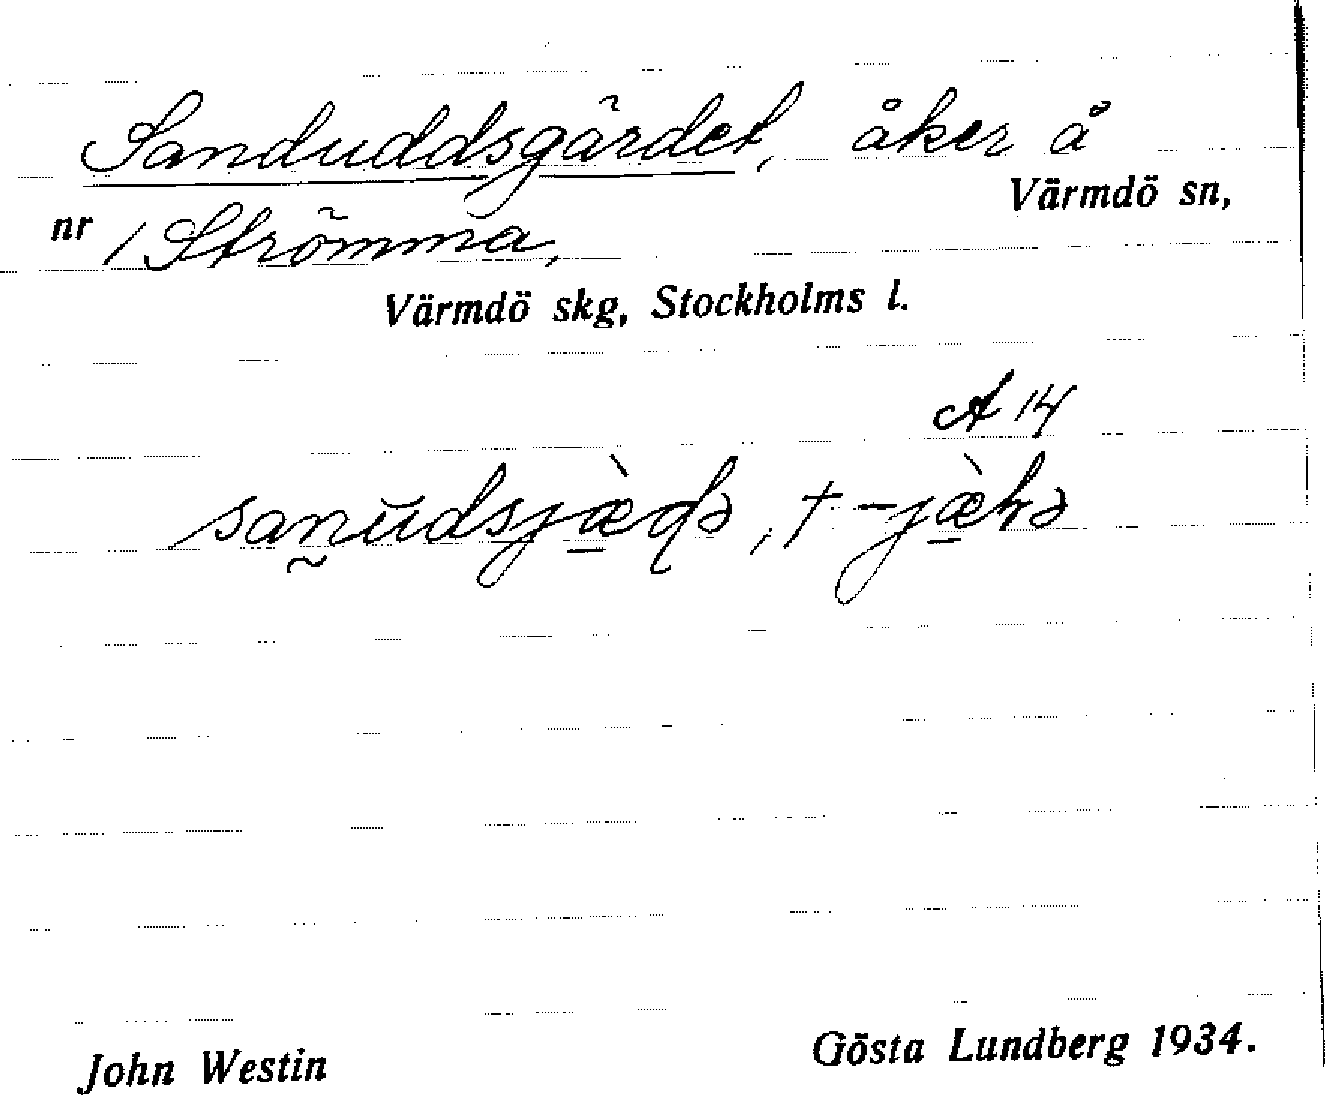 Sanduddsgärdet, åker å
Värmdö sn,
nr 1 Strömma,
Värmdö skg, Stockholms l.
A 14
John Westin
Gösta Lundberg 1934.